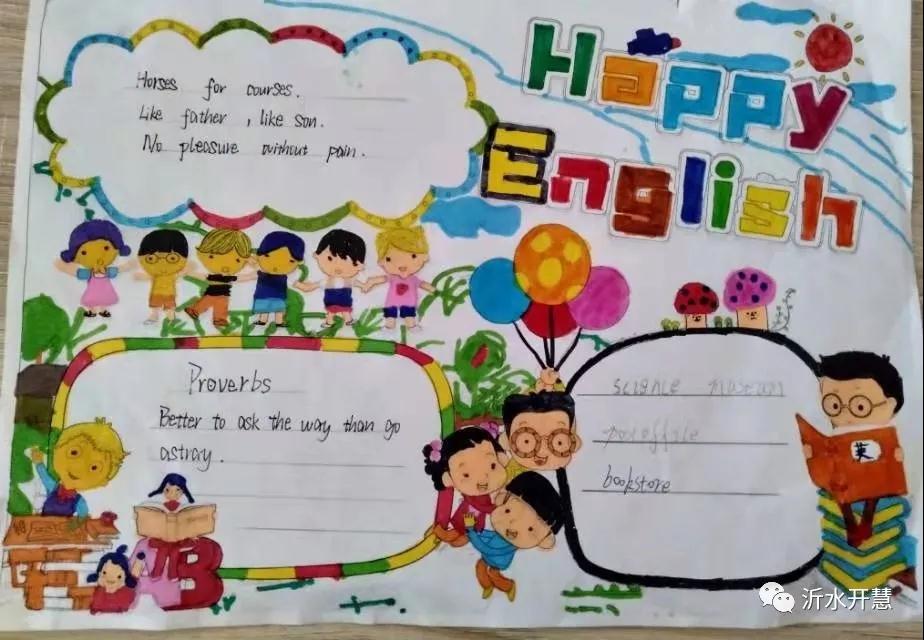 Happy
English
Horses for courses.
Like father , like son.
No pleasure without pain.
Proverbs
Better to ask the way than go
astray.
science museum
post office
bookstore
英
AB
沂水开慧